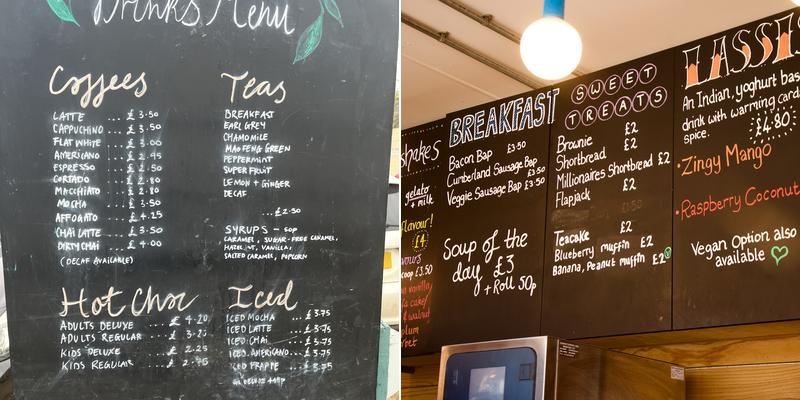 Drinks Menu
Coffees
LATTE ... £3.50
CAPPUCHINO ... £3.50
FLAT WHITE ... £3.00
AMERICANO ... £2.95
ESPRESSO ... £2.50
CORTADO ... £2.80
MACCHIATO ... £2.80
MOCHA ... £3.50
AFFOGATO ... £4.25
CHAI LATTE ... £3.50
DIRTY CHAI ... £4.00
(DECAF AVAILABLE)
Teas
BREAKFAST
EARL GREY
CHAMOMILE
MAO FENG GREEN
PEPPERMINT
SUPER FRUIT
LEMON + GINGER
DECAF
...£2.50
SYRUPS - 50p
CARAMEL, SUGAR-FREE CARAMEL,
HAZELNUT, VANILLA,
SALTED CARAMEL, POPCORN
Hot Choc
ADULTS DELUXE ... £4.20
ADULTS REGULAR ... £3.20
KIDS DELUXE ... £2.25
KIDS REGULAR ... £
Iced
ICED MOCHA ... £3.75
ICED LATTE ... £3.75
ICED CHAI ... £3.75
ICED AMERICANO ... £3.75
ICED FRAPPE ... £3.75
shakes
gelato
+ milk
flavour!
£4
scoop £3.50
vanilla
walnut
plum
BREAKFAST
Bacon Bap £3.50
Cumberland Sausage Bap £3.50
Veggie Sausage Bap £3.50
Soup of the
day £3
+ Roll 50p
SWEET
TREATS
Brownie £2
Shortbread £2
Millionaires Shortbread £2
Flapjack £2
Teacake £2
Blueberry muffin £2
Banana, Peanut muffin £2
LASSI
An Indian, yoghurt bas
drink with warming card
spice.
£4.80
•Zingy Mango
•Raspberry Coconut
Vegan Option also
available